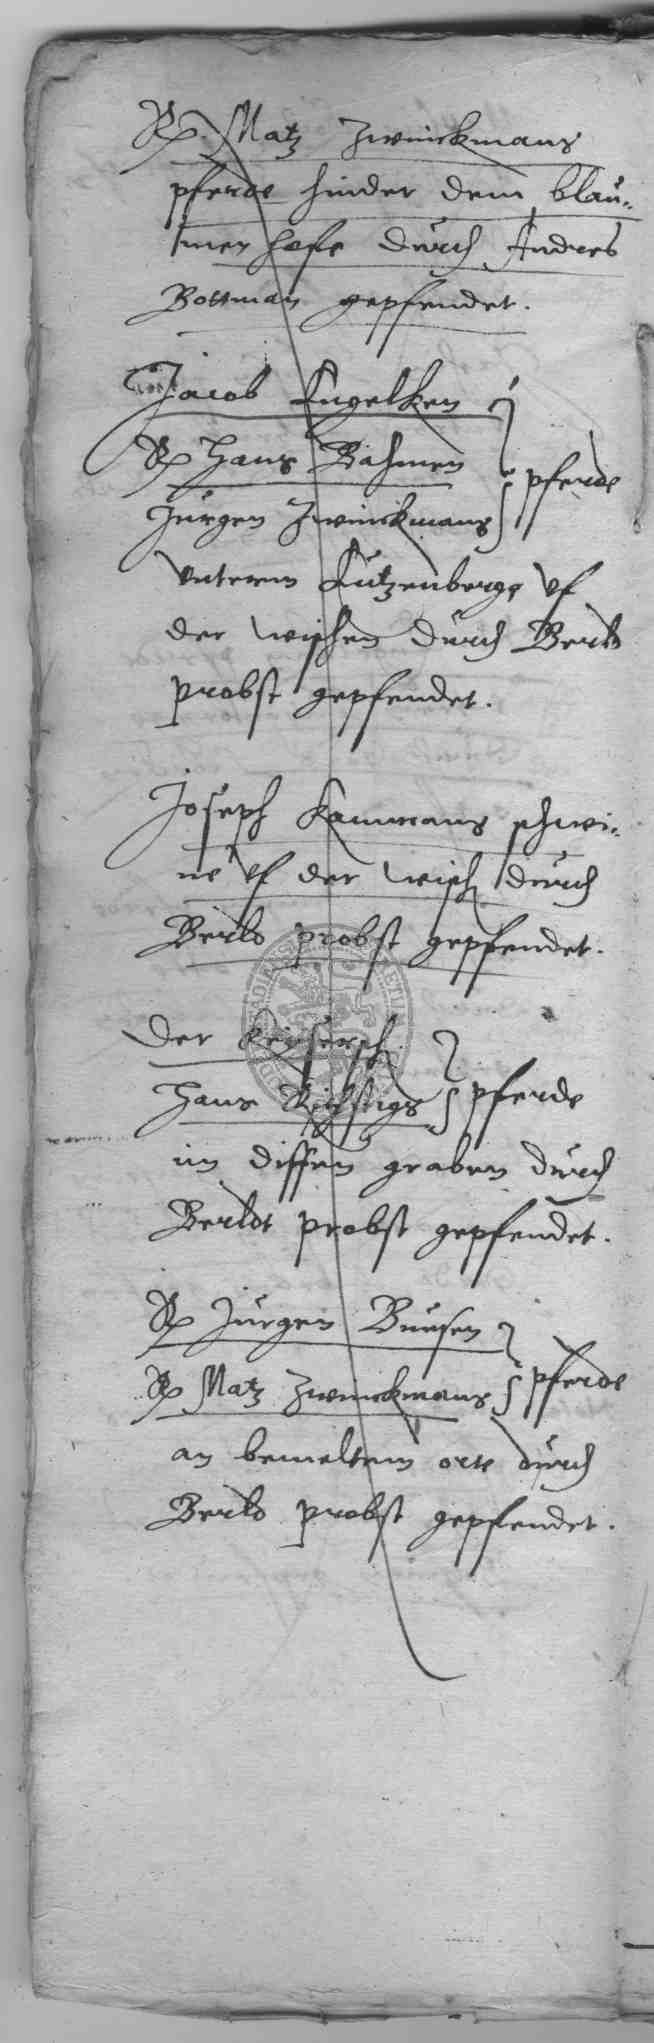 Rp. Matz Zwinckmans
pferde hinder dem blau-
men hofe durch Andres
Bottman gepfendet.
Jacob Engelken
Rp Hans Bahmen } pferde
Jürgen Zwinckmans
unterm Kutzenberge uf
der wischen durch Berld
probst gepfendet.
Joseph Kammans schwi-
ne uf der wisch durch
Berld probst gepfendet.
Der Keysersch
Hans } pferde
im diffen graben durch
Berldt probst gepfendet.
Rp Jürgen Buesen
Rp Matz Zwinckmans } pferde
an bemeltem orte durch
Berld probst gepfendet.